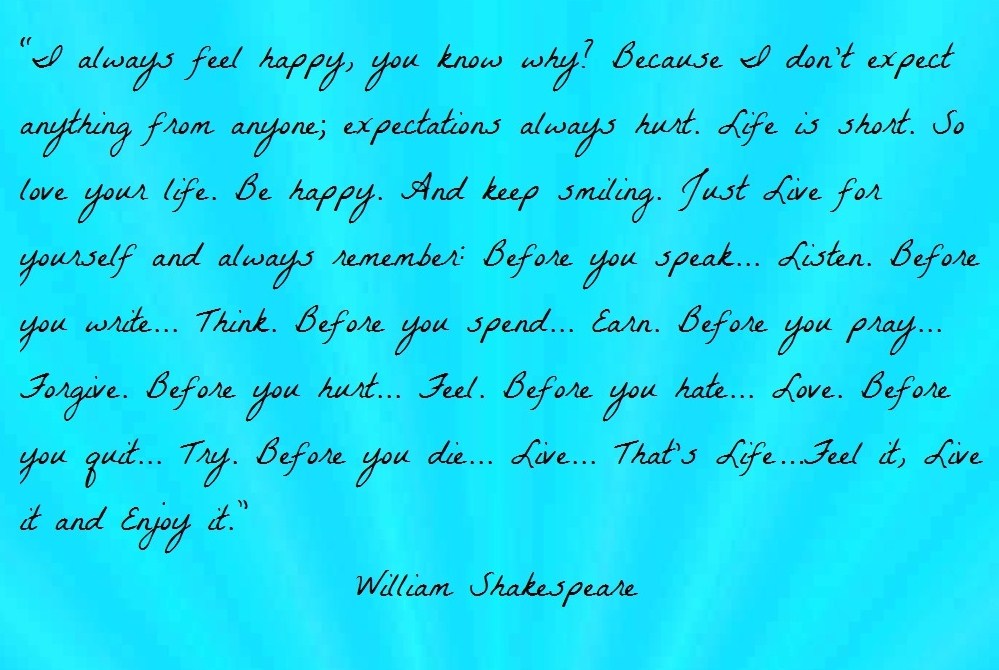 “I always feel happy, you know why? Because I don't expect
anything from anyone; expectations always hurt. Life is short. So
love your life. Be happy. And keep smiling. Just Live for
yourself and always remember: Before you speak... Listen. Before
you write... Think. Before you spend... Earn. Before you pray...
Forgive. Before you hurt... Feel. Before you hate... Love. Before
you quit... Try. Before you die... Live... That's Life...Feel it, Live
it and Enjoy it.”
William Shakespeare